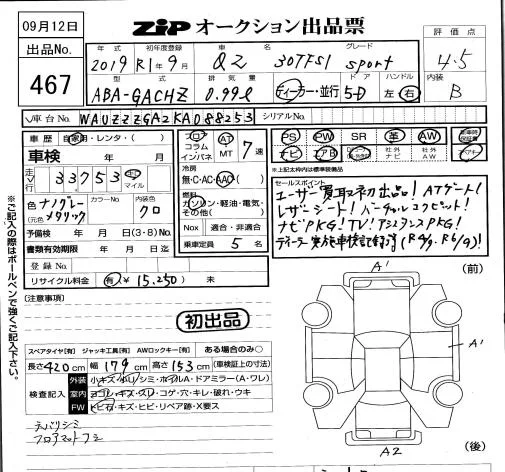 09月12日
ZIP オークション出品票
出品No.
467
評価点
4.5
内装
B
年式 初年度登録 車名 グレード
2019 R1年9月 Q2 30TFSI sport
型式 排気量 ドア ハンドル
ABA-GACHZ 0.99ℓ ディーラー・並行 5D 左 右
車台No. WAUZZZGA2KA088253 シリアルNo.
車歴 自家用・レンタ・( )
車検 年 月
走行 33753 キロ マイル
色 ナノグレーメタリック (元色) カラーNo. 内装色 クロ
予備検 年 月 日(3・8)No.
書類有効期限 年 月 日迄
登録No.
リサイクル料金 有 ¥15,250 未
フロア コラム インパネ AT MT 7速
冷房
無・C・AC・AAC
燃料
ガソリン・軽油・電気・その他( )
Nox 適合・非適合
乗車定員 5 名
PS PW SR 革 AW
ナビ エアB 社外ナビ 社外AW
※上記太枠内は標準装備品
セールスポイント
ユーザー買取初出品! ATゲート!
レザーシート! バーチャルコクピット!
ナビPKG! TV! アシスタンスPKG!
ディーラー実施車検記録簿(R4/9. R6/9)!
※ご記入の際はボールペンで強くご記入下さい。
(注意事項)
初出品
スペアタイヤ[有] ジャッキ工具[有] AWロックキー[有] ある場合のみ○
長さ420cm 幅179cm 高さ153cm (車検証上の寸法)
検査記入
外装 小キズ・小凹・シミ・ホイルA・ドアミラー(A・ワレ)
室内 ヨゴレ・キズ・スレ・コゲ・穴・キレ・破れ・ウキ
FW トビ石・キズ・ヒビ・リペア跡・X要ス
ネバリシミ
フロアマットシミ
(前)
A'
A'
A2
(後)